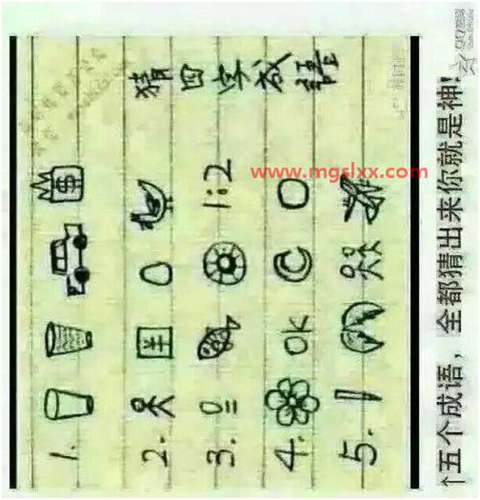 猜四字成語
1. $
2.
3. 1:2
4. OK
5.
www.mgslxx.com
↑五个成语，全都猜出来你就是神!